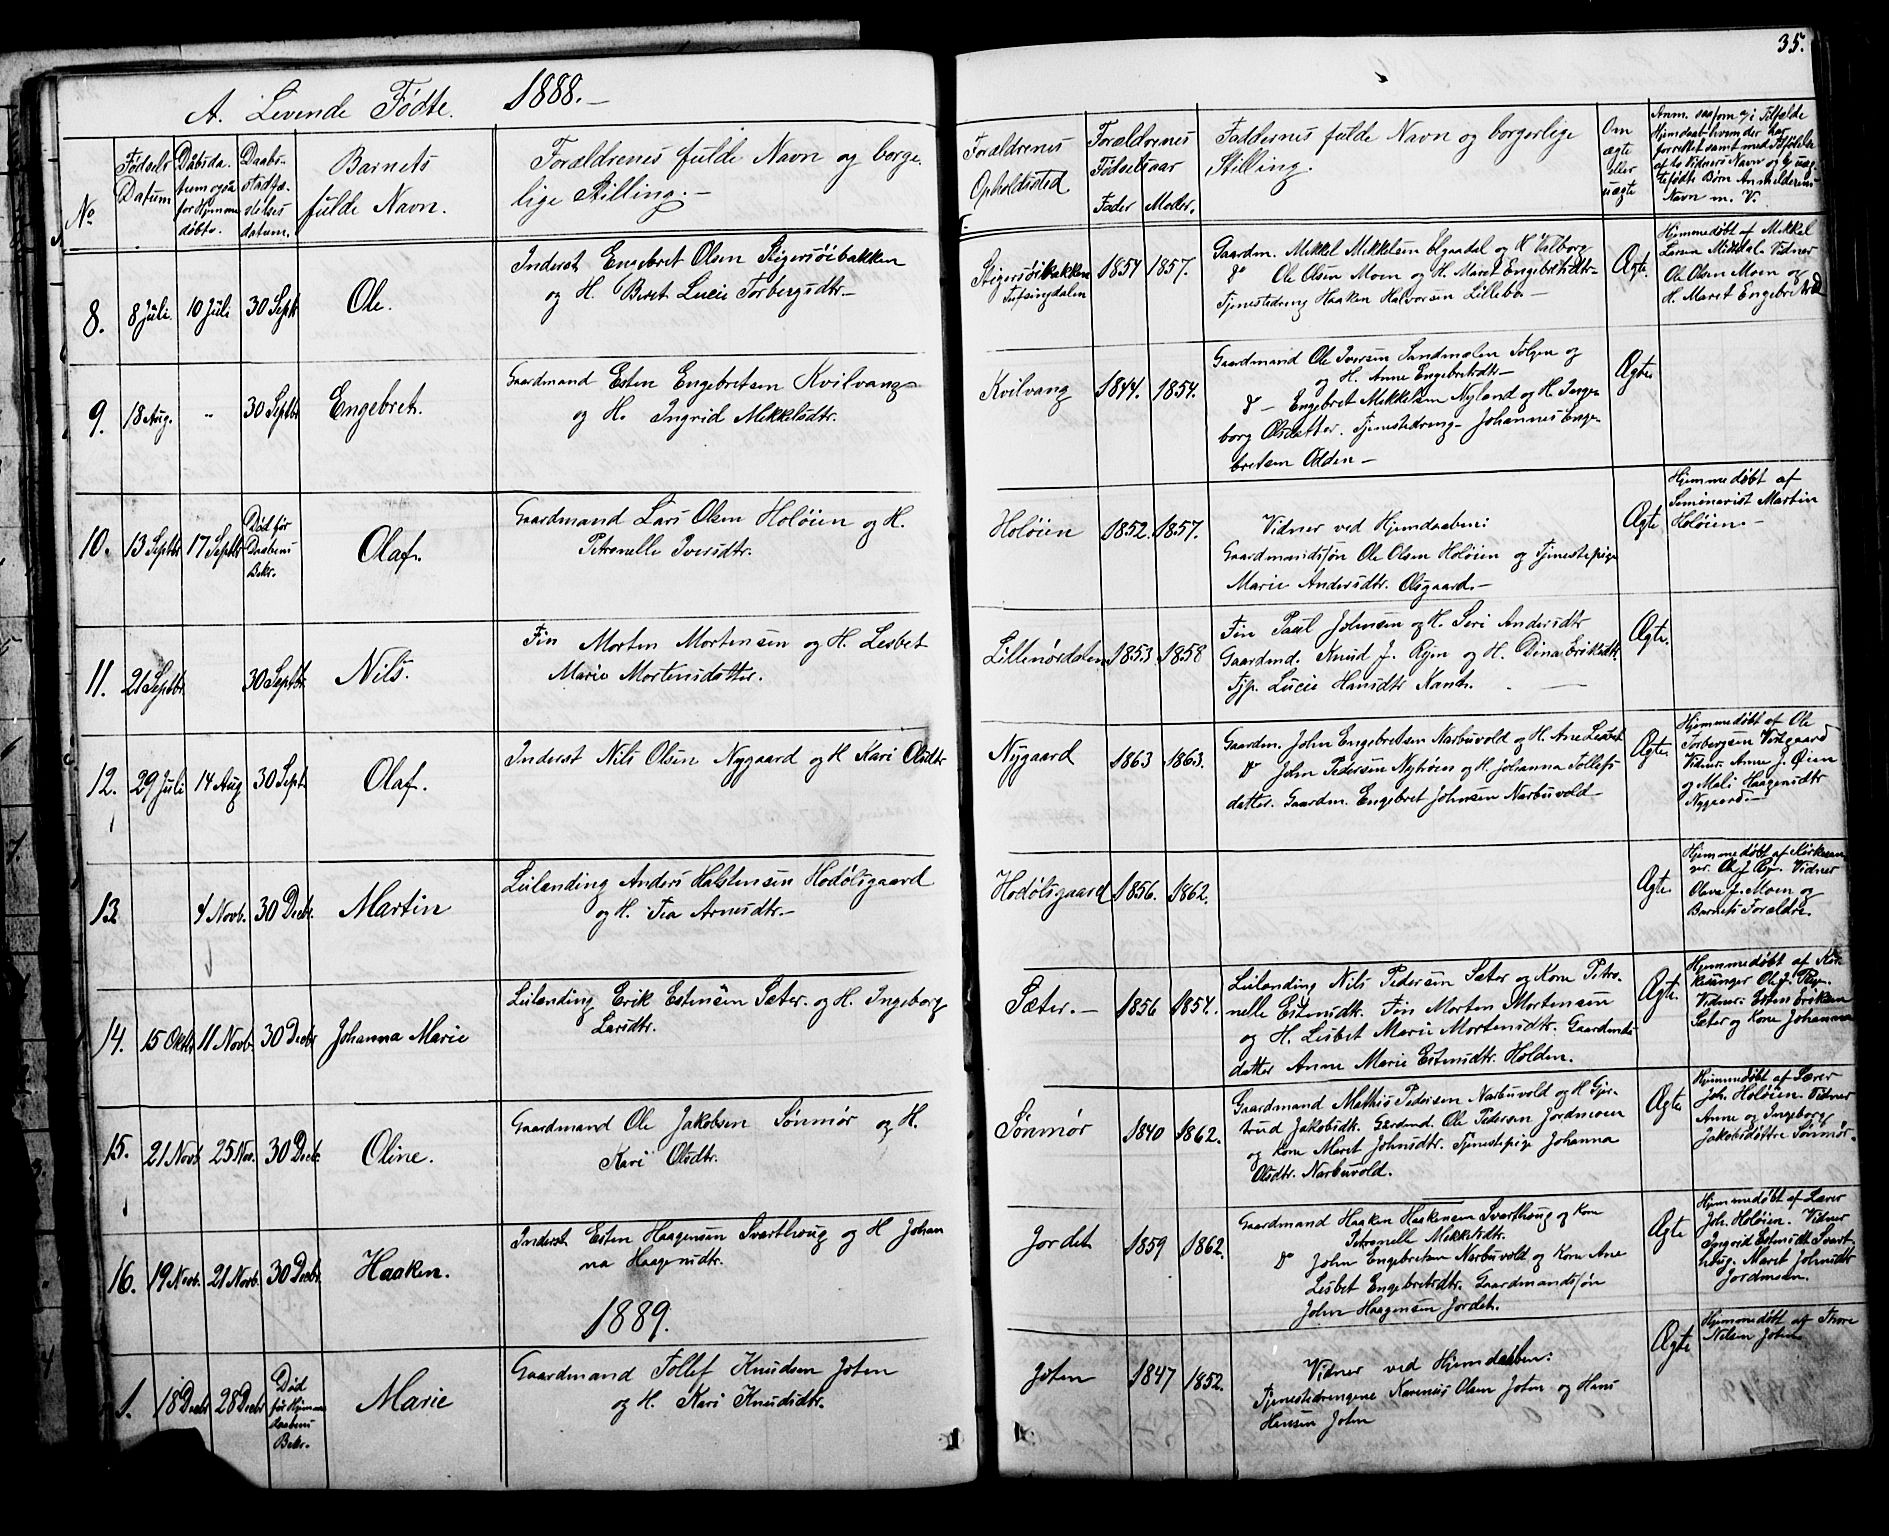 35.
A. Levende Fødte. 1888.-
No
Fødsels
Datum
Daabsda-
tum ogsaa
for Hjemme
døbte.
Daabs-
stadfæ-
stelses
datum.
Barnets
fulde Navn.
Forældrenes fulde Navn og borge-
lige Stilling.-
Forældrenes
Opholdssted
Forældrenes
Fødselsaar
Fader Moder.
Faddernes fulde Navn og borgerlige
Stilling.
Om
ægte
eller
uægte
8. 8 Juli. 10 Juli 30 Septr Ole.
Inderst Engebret Olsen Stigersøibakken
og H. Beret Lucie Torbergsdtr-
Stigersøibakken
Tufsingdalen
1854 1857.
Gaardm. Mikkel Mikkelsen Elgaadal og H Valborg
do Ole Olsen Moen og H. Maret Engebretsdtr-
Tjenestedreng Haaken Halvorsen Lillebo-
Ægte.
Hjemmedøbt af Mikkel
Larsen Mikkdal. Vidner
Ole Olsen Moen og
H. Maret Engebretsd
9. 18 Aug. " 30 Septbr Engebret.
Gaardmand Esten Engebretsen Kvilvang
og H. Ingrid Mikkelsdtr.
Kvilvang 1844. 1854.
Gaardmand Ole Iversen Sandmælen Tolgen og
og H. Anne Engebretsdtr-
do - Engebret Mikkelsen Nyland og H. Inge-
borg Olsdatter. Tjenestedreng- Johannes Enge-
bretsen Odden-
Ægte
10. 13 Septbr 17 Septbr
Død før
Daabens
Bekr.
Olaf.
Gaardmand Lars Olsen Holøien og H.
Petronelle Iversdtr.
Holøien 1852. 1857.
Vidner ved Hjemdaaben:
Gaardmandssøn Ole Olsen Holøien og Tjenestepige
Marie Andersdtr. Olsgaard.-
Ægte
Hjemmedøbt af
Seminarist Martin
Holøien.-
11. 21 Septbr. 30 Septbr. Nils.
Fin Morten Mortensen og H. Lesbet
Marie Mortensdatter.
Lillenørdalen 1853 1858
Fin Paul Johnsen og H. Seri Andersdtr
Gaardmd. Knud J. Ryen og H. Dina Eriksdtr.
Tjp. Lucie Hansdtr Kant.
Ægte.
12. 29 Juli 14 Aug 30 Sept. Olaf.
Inderst Nils Olsen Nygaard og H Kari Olsdtr
Nygaard 1863 1863.
Gaardm. John Engebretsen Narbuvold og H. Ane Lesbet
do John Pedersen Nytrøen og H. Johanna Tollefs
datter. Gaardm. Engebret Johnsen Narbuvold-
Ægte
Hjemmedøbt af Ole
Torbergsen Vistgaard
Vidner Anne J. Øien
og Mali Haagensdtr
Nygaard.-
13. 4 Novb. 30 Decbr. Martin
Leilænding Anders Halstensen Hodølsgaard
og H. Tea Arnesdtr.-
Hodølsgaard 1856. 1862.
Ægte.
Hjemmedøbt af Kirkesan-
ger Ole J. Ry. Vidner
Olava J. Moen og
Barnets Forældre.
14. 15 Oktbr 11 Novb. 30 Decbr Johanna Marie
Leilænding Erik Estensen Sæter. og H. Ingeborg
Larsdtr.
Sæter.- 1856 1854.
Leilænding Nils Pedersen Sæter og Kone Petro-
nelle Estensdtr. Fin Morten Mortensen
og H. Lisbet Marie Mortensdtr. Gaardmds
datter Anne Marie Estensdtr. Holden.
Ægte.
Hjemmedøbt af Kir-
kesanger Ole J. Ryen.
Vidner: Esten Eriksen
Sæter og Kone Johanna
15. 21 Novb 25 Nov. 30 Decbr. Oline.
Gaardmand Ole Jakobsen Sønmør og H.
Kari Olsdtr.
Sønmør 1840 1862.
Gaardmand Mathis Pedersen Narbuvold og H Gjer-
trud Jakobsdtr. Gardmd. Ole Pedersen Jordmoen
og Kone Maret Johnsdtr. Tjenestepige Johanna
Olsdtr. Narbuvold.
Ægte
Hjemmedøbt af Lærer
Joh. Holøien. Vidner
Anne og Ingeborg
Jakobsdøttre Sønmør.
16. 19 Novb. 21 Novb. 30 Decbr. Haaken.
Inderst Esten Haagensen Svarthoug og H Johan
na Haagensdtr.
Jordet 1859 1862.
Gaardmand Haaken Haakensen Svarthoug og Kone
Petronelle Mikkelsdtr.
do John Engebretsen Narbuvold og Kone Ane
Lesbet Engebretsdtr. Gaardmandssøn
John Haagensen Jordet.
Ægte
Hjemmedøbt af Lærer
Joh. Holøien. Vidner
Ingrid Estensdtr Svart-
houg. Maret Johnsdtr
Jordmoen.
1889.
1. 18 Decbr 28 Decbr
Død
før Hjemme
daabens
Bekr.
Marie
Gaardmand Tollef Knudsen Joten
og H. Kari Knudsdtr.
Joten 1847 1852.
Vidner ved Hjemdaaben:
Tjenestedrengene Karenus Olsen Joten og Hans
Hansen Joten
Ægte
Hjemmedøbt af Thore
Nilsen Joten